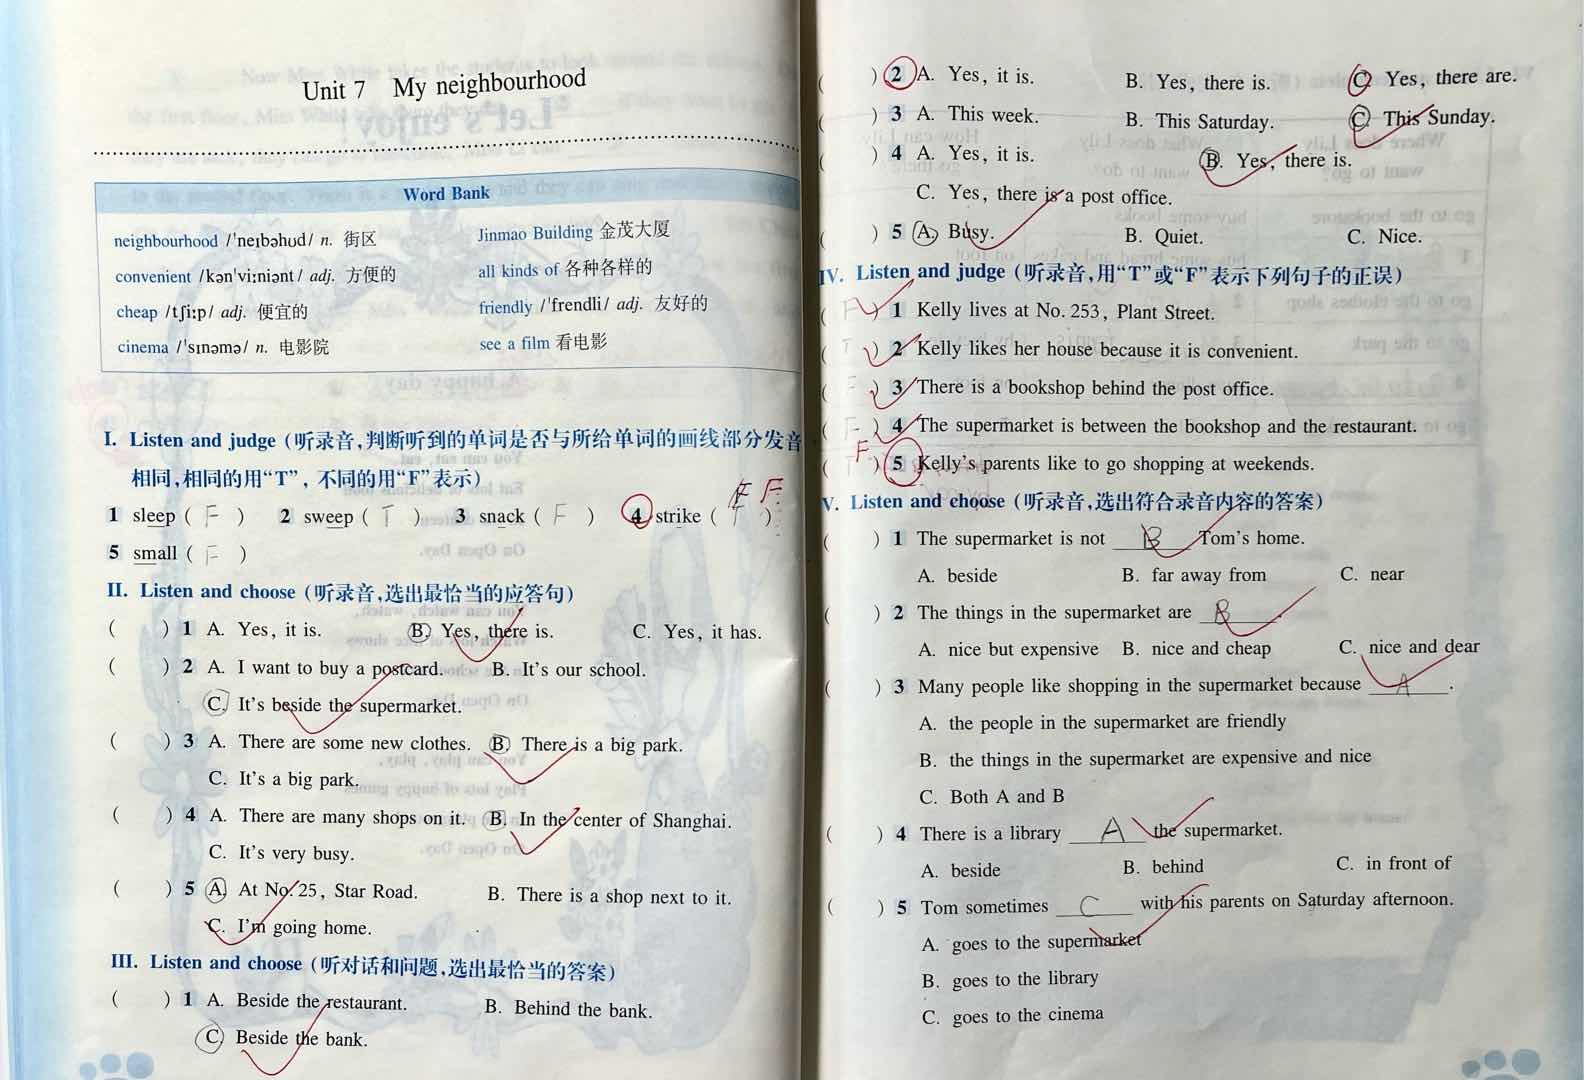 Unit 7 My neighbourhood
Word Bank
neighbourhood /ˈneɪbəhʊd/ n. 街区
convenient /kənˈviːniənt/ adj. 方便的
cheap /tʃiːp/ adj. 便宜的
cinema /ˈsɪnəmə/ n. 电影院
Jinmao Building 金茂大厦
all kinds of 各种各样的
friendly /ˈfrendli/ adj. 友好的
see a film 看电影
I. Listen and judge (听录音,判断听到的单词是否与所给单词的画线部分发音
相同,相同的用“T”, 不同的用“F”表示)
1 sleep ( F ) 2 sweep ( T ) 3 snack ( F ) 4 strike ( F )
5 small ( F )
II. Listen and choose (听录音,选出最恰当的应答句)
( ) 1 A. Yes, it is. B. Yes, there is. C. Yes, it has.
( ) 2 A. I want to buy a postcard. B. It's our school.
C. It's beside the supermarket.
( ) 3 A. There are some new clothes. B. There is a big park.
C. It's a big park.
( ) 4 A. There are many shops on it. B. In the center of Shanghai.
C. It's very busy.
( ) 5 A. At No. 25, Star Road. B. There is a shop next to it.
C. I'm going home.
III. Listen and choose (听对话和问题,选出最恰当的答案)
( ) 1 A. Beside the restaurant. B. Behind the bank.
C. Beside the bank.
( ) 2 A. Yes, it is. B. Yes, there is. C. Yes, there are.
( ) 3 A. This week. B. This Saturday. C. This Sunday.
( ) 4 A. Yes, it is. B. Yes, there is.
C. Yes, there is a post office.
( ) 5 A. Busy. B. Quiet. C. Nice.
IV. Listen and judge (听录音,用“T”或“F”表示下列句子的正误)
( F ) 1 Kelly lives at No. 253, Plant Street.
( T ) 2 Kelly likes her house because it is convenient.
( F ) 3 There is a bookshop behind the post office.
( F ) 4 The supermarket is between the bookshop and the restaurant.
F
( T ) 5 Kelly's parents like to go shopping at weekends.
V. Listen and choose (听录音,选出符合录音内容的答案)
( ) 1 The supermarket is not B Tom's home.
A. beside B. far away from C. near
( ) 2 The things in the supermarket are B .
A. nice but expensive B. nice and cheap C. nice and dear
( ) 3 Many people like shopping in the supermarket because A .
A. the people in the supermarket are friendly
B. the things in the supermarket are expensive and nice
C. Both A and B
( ) 4 There is a library A the supermarket.
A. beside B. behind C. in front of
( ) 5 Tom sometimes C with his parents on Saturday afternoon.
A. goes to the supermarket
B. goes to the library
C. goes to the cinema